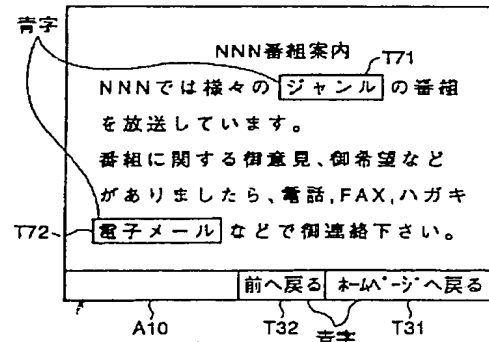 青字
NNN番組案内
T71
NNNでは様々の ジャンル の番組
を放送しています。
番組に関する御意見、御希望など
がありましたら、電話,FAX,ハガキ
T72
電子メール などで御連絡下さい。
前へ戻る ホームページへ戻る
A10 T32 青字 T31